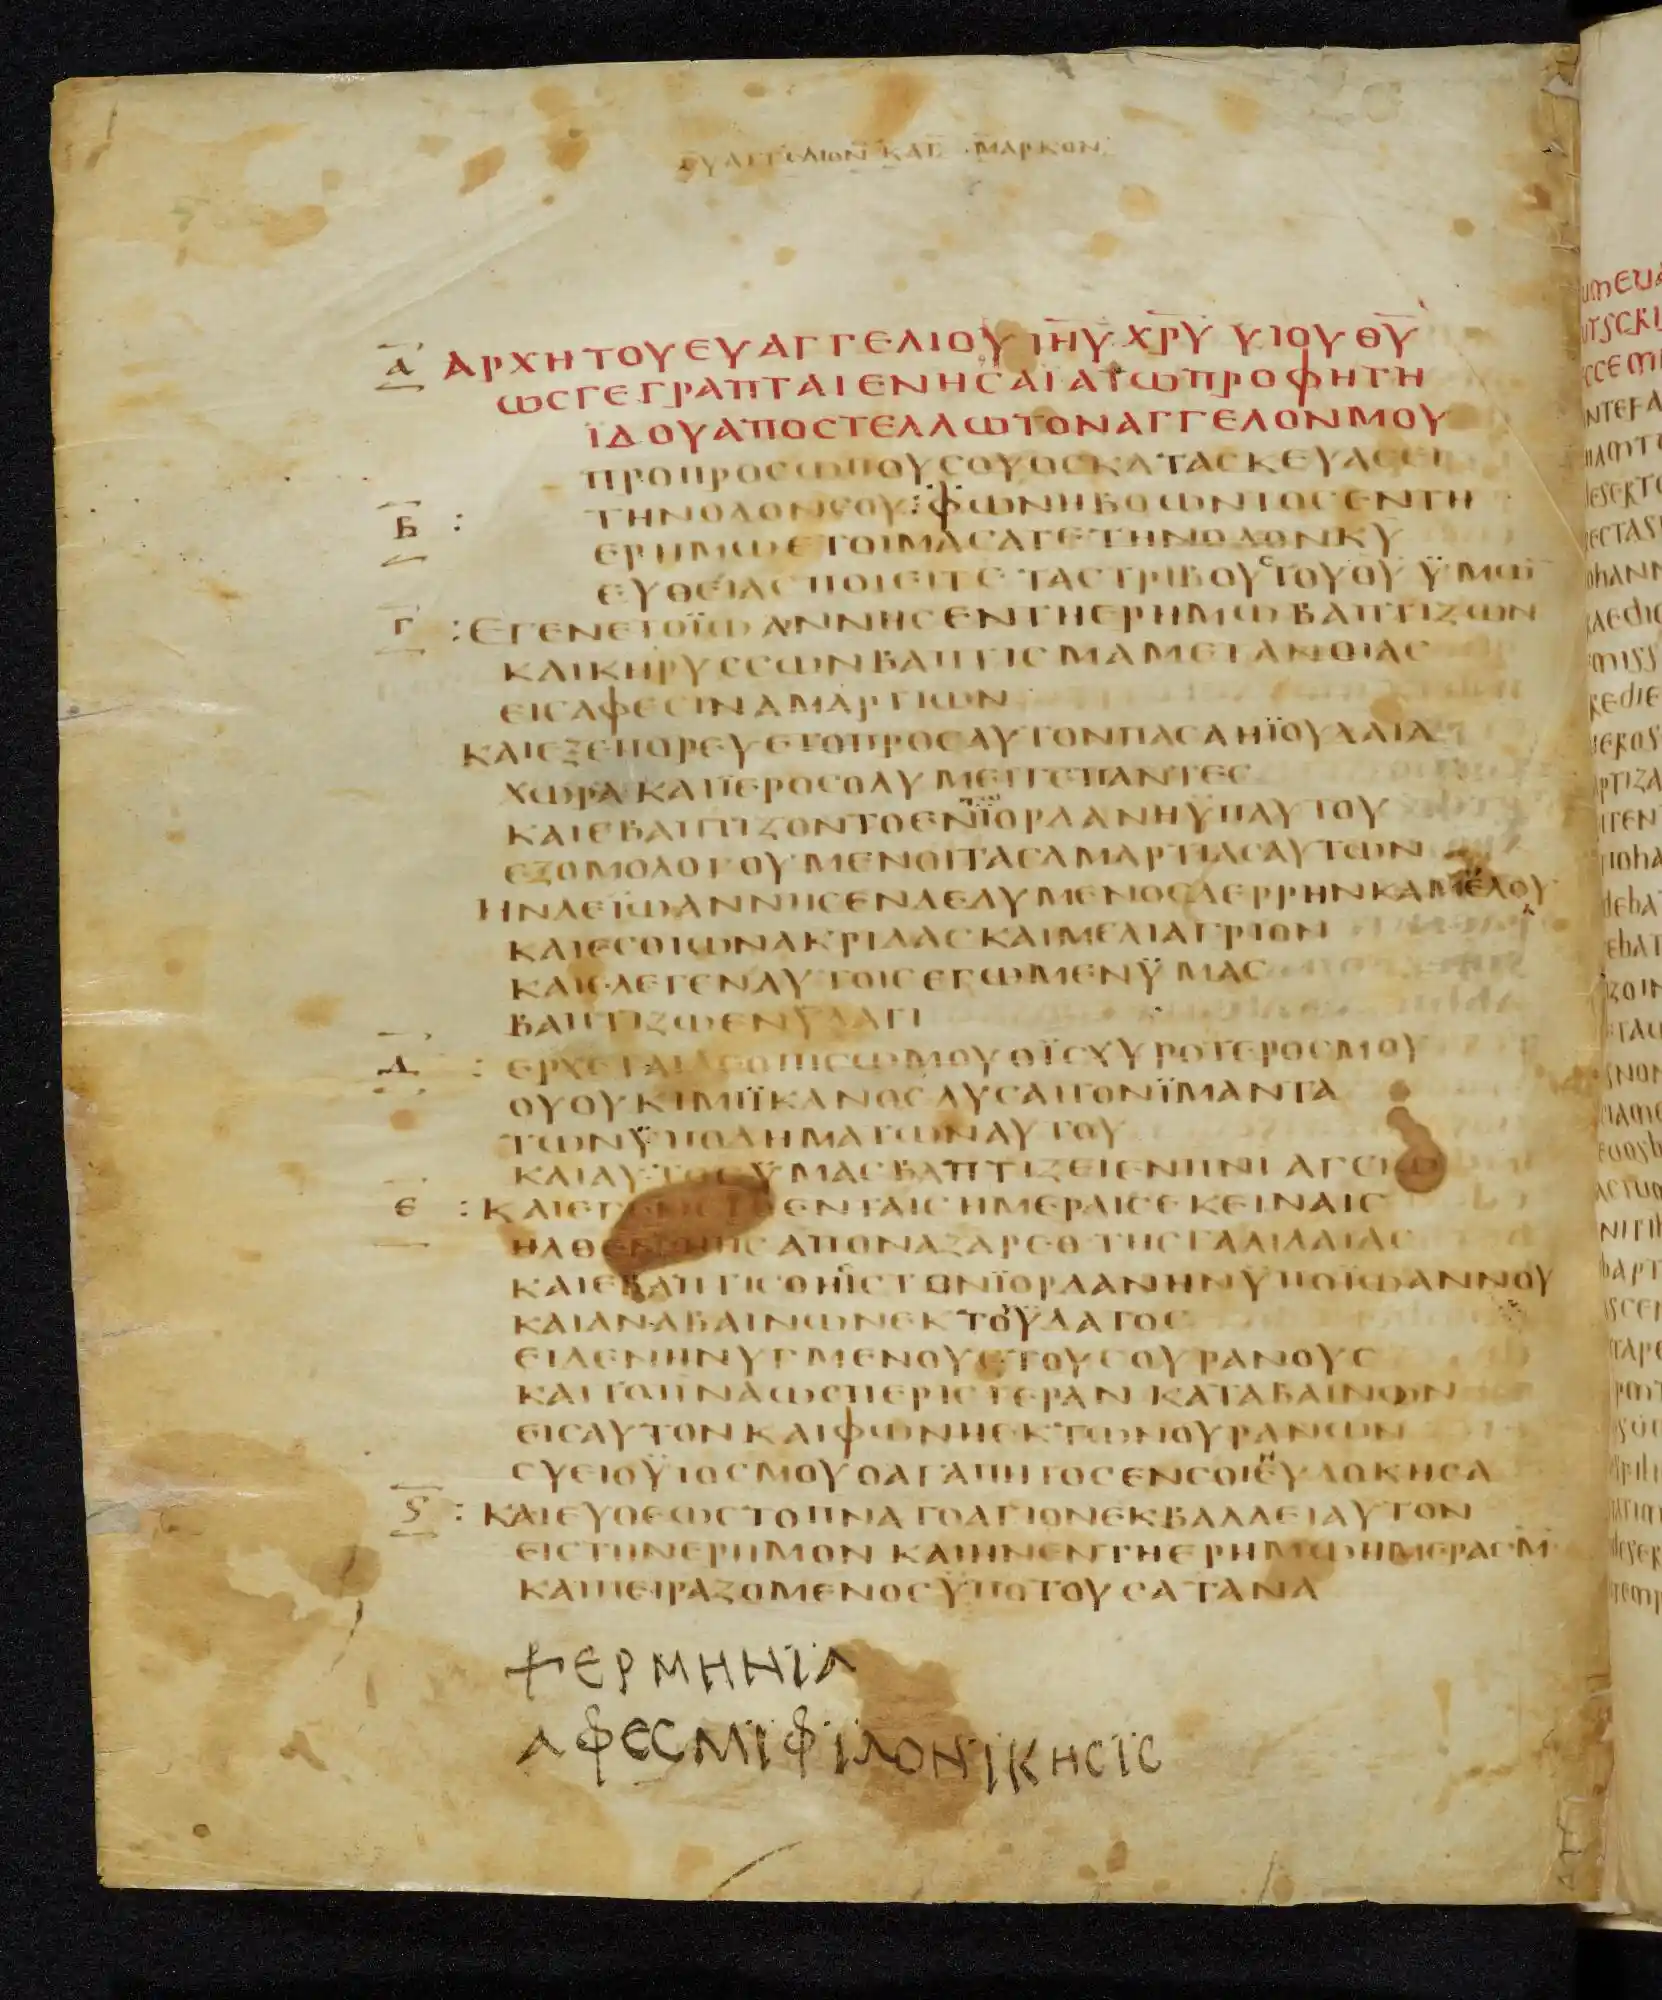 ΕΥΑΓΓΕΛΙΟΝ ΚΑΤ ΜΑΡΚΟΝ
Α ΑΡΧΗ ΤΟΥ ΕΥΑΓΓΕΛΙΟΥ ΙΗΥ ΧΡΥ ΥΙΟΥ ΘΥ
ΩΣ ΓΕΓΡΑΠΤΑΙ ΕΝ ΗΣΑΙΑ ΤΩ ΠΡΟΦΗΤΗ
ΪΔΟΥ ΑΠΟΣΤΕΛΛΩ ΤΟΝ ΑΓΓΕΛΟΝ ΜΟΥ
ΠΡΟ ΠΡΟΣΩΠΟΥ ΣΟΥ ΟΣ ΚΑΤΑΣΚΕΥΑΣΕΙ
Β : ΤΗΝ ΟΔΟΝ ΣΟΥ : ΦΩΝΗ ΒΟΩΝΤΟΣ ΕΝ ΤΗ
ΕΡΗΜΩ ΕΤΟΙΜΑΣΑΤΕ ΤΗΝ ΟΔΟΝ ΚΥ
ΕΥΘΕΙΑΣ ΠΟΙΕΙΤΕ ΤΑΣ ΤΡΙΒΟΥΣ ΤΟΥ ΘΥ ΫΜΩΝ
Γ : ΕΓΕΝΕΤΟ ΪΩΑΝΝΗΣ ΕΝ ΤΗ ΕΡΗΜΩ ΒΑΠΤΙΖΩΝ
ΚΑΙ ΚΗΡΥΣΣΩΝ ΒΑΠΤΙΣΜΑ ΜΕΤΑΝΟΙΑΣ
ΕΙΣ ΑΦΕΣΙΝ ΑΜΑΡΤΙΩΝ
ΚΑΙ ΕΞΕΠΟΡΕΥΕΤΟ ΠΡΟΣ ΑΥΤΟΝ ΠΑΣΑ Η ΪΟΥΔΑΙΑ
ΧΩΡΑ ΚΑΙ ΪΕΡΟΣΟΛΥΜΕΙΤΕ ΠΑΝΤΕΣ
ΚΑΙ ΕΒΑΠΤΙΖΟΝΤΟ ΕΝ ΪΟΡΔΑΝΗ ΫΠ ΑΥΤΟΥ
ΕΞΟΜΟΛΟΓΟΥΜΕΝΟΙ ΤΑΣ ΑΜΑΡΤΙΑΣ ΑΥΤΩΝ
ΗΝ ΔΕ ΪΩΑΝΝΗΣ ΕΝΔΕΔΥΜΕΝΟΣ ΔΕΡΡΗΝ ΚΑΜΗΛΟΥ
ΚΑΙ ΕΣΘΙΩΝ ΑΚΡΙΔΑΣ ΚΑΙ ΜΕΛΙ ΑΓΡΙΟΝ
ΚΑΙ ΕΛΕΓΕΝ ΑΥΤΟΙΣ ΕΓΩ ΜΕΝ ΫΜΑΣ
ΒΑΠΤΙΖΩ ΕΝ ΥΔΑΤΙ
Δ : ΕΡΧΕΤΑΙ ΔΕ ΟΠΙΣΩ ΜΟΥ Ο ΪΣΧΥΡΟΤΕΡΟΣ ΜΟΥ
ΟΥ ΟΥΚ ΙΜΙ ΪΚΑΝΟΣ ΛΥΣΑΙ ΤΟΝ ΪΜΑΝΤΑ
ΤΩΝ ΫΠΟΔΗΜΑΤΩΝ ΑΥΤΟΥ
ΚΑΙ ΑΥΤΟΣ ΫΜΑΣ ΒΑΠΤΙΖΕΙ ΕΝ ΠΝΙ ΑΓΕΙΩ
Ε : ΚΑΙ ΕΓΕΝΕΤΟ ΕΝ ΤΑΙΣ ΗΜΕΡΑΙΣ ΕΚΕΙΝΑΙΣ
ΗΛΘΕΝ Ο ΙΗΣ ΑΠΟ ΝΑΖΑΡΕΘ ΤΗΣ ΓΑΛΙΛΑΙΑΣ
ΚΑΙ ΕΒΑΠΤΙΣΘΗ ΙΣ ΤΟΝ ΪΟΡΔΑΝΗΝ ΫΠΟ ΪΩΑΝΝΟΥ
ΚΑΙ ΑΝΑΒΑΙΝΩΝ ΕΚ ΤΟΥ ΫΔΑΤΟΣ
ΕΙΔΕΝ ΗΝΥΓΜΕΝΟΥΣ ΤΟΥΣ ΟΥΡΑΝΟΥΣ
ΚΑΙ ΤΟ ΠΝΑ ΩΣ ΠΕΡΙΣΤΕΡΑΝ ΚΑΤΑΒΑΙΝΟΝ
ΕΙΣ ΑΥΤΟΝ ΚΑΙ ΦΩΝΗ ΕΚ ΤΩΝ ΟΥΡΑΝΩΝ
ΣΥ ΕΙ Ο ΫΙΟΣ ΜΟΥ Ο ΑΓΑΠΗΤΟΣ ΕΝ ΣΟΙ ΕΥΔΟΚΗΣΑ
Ϛ : ΚΑΙ ΕΥΘΕΩΣ ΤΟ ΠΝΑ ΤΟ ΑΓΙΟΝ ΕΚΒΑΛΛΕΙ ΑΥΤΟΝ
ΕΙΣ ΤΗΝ ΕΡΗΜΟΝ ΚΑΙ ΗΝ ΕΝ ΤΗ ΕΡΗΜΩ ΗΜΕΡΑΣ·Μ·
ΚΑΙ ΠΕΙΡΑΖΟΜΕΝΟΣ ΫΠΟ ΤΟΥ ΣΑΤΑΝΑ
ΕΡΜΗΝΪΑ
ΑΦΕΣ ΜΪ ΦΪΛΟΝΪΚΗΣΪΣ